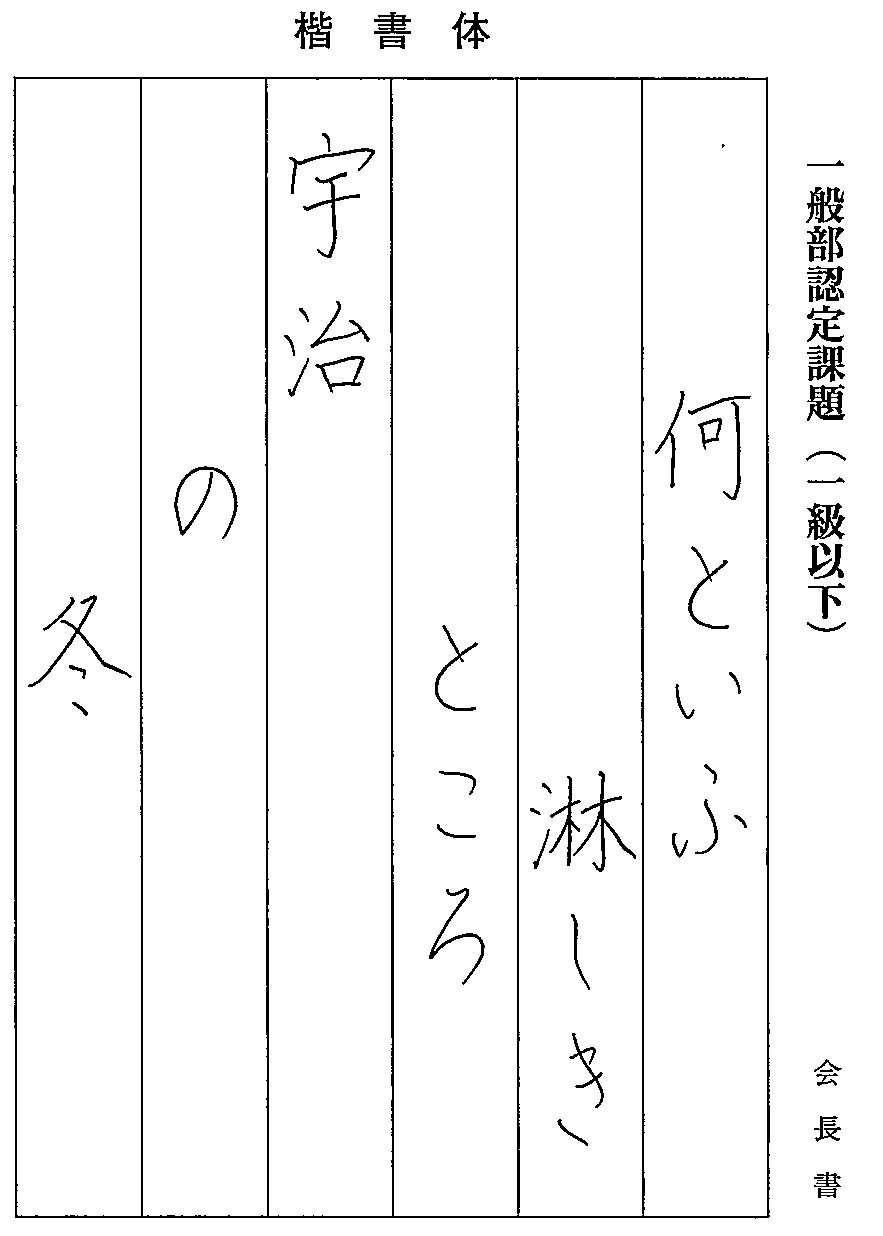 楷書体
一般部認定課題（一級以下）
会長書
何といふ
淋しき
ところ
宇治
の
冬